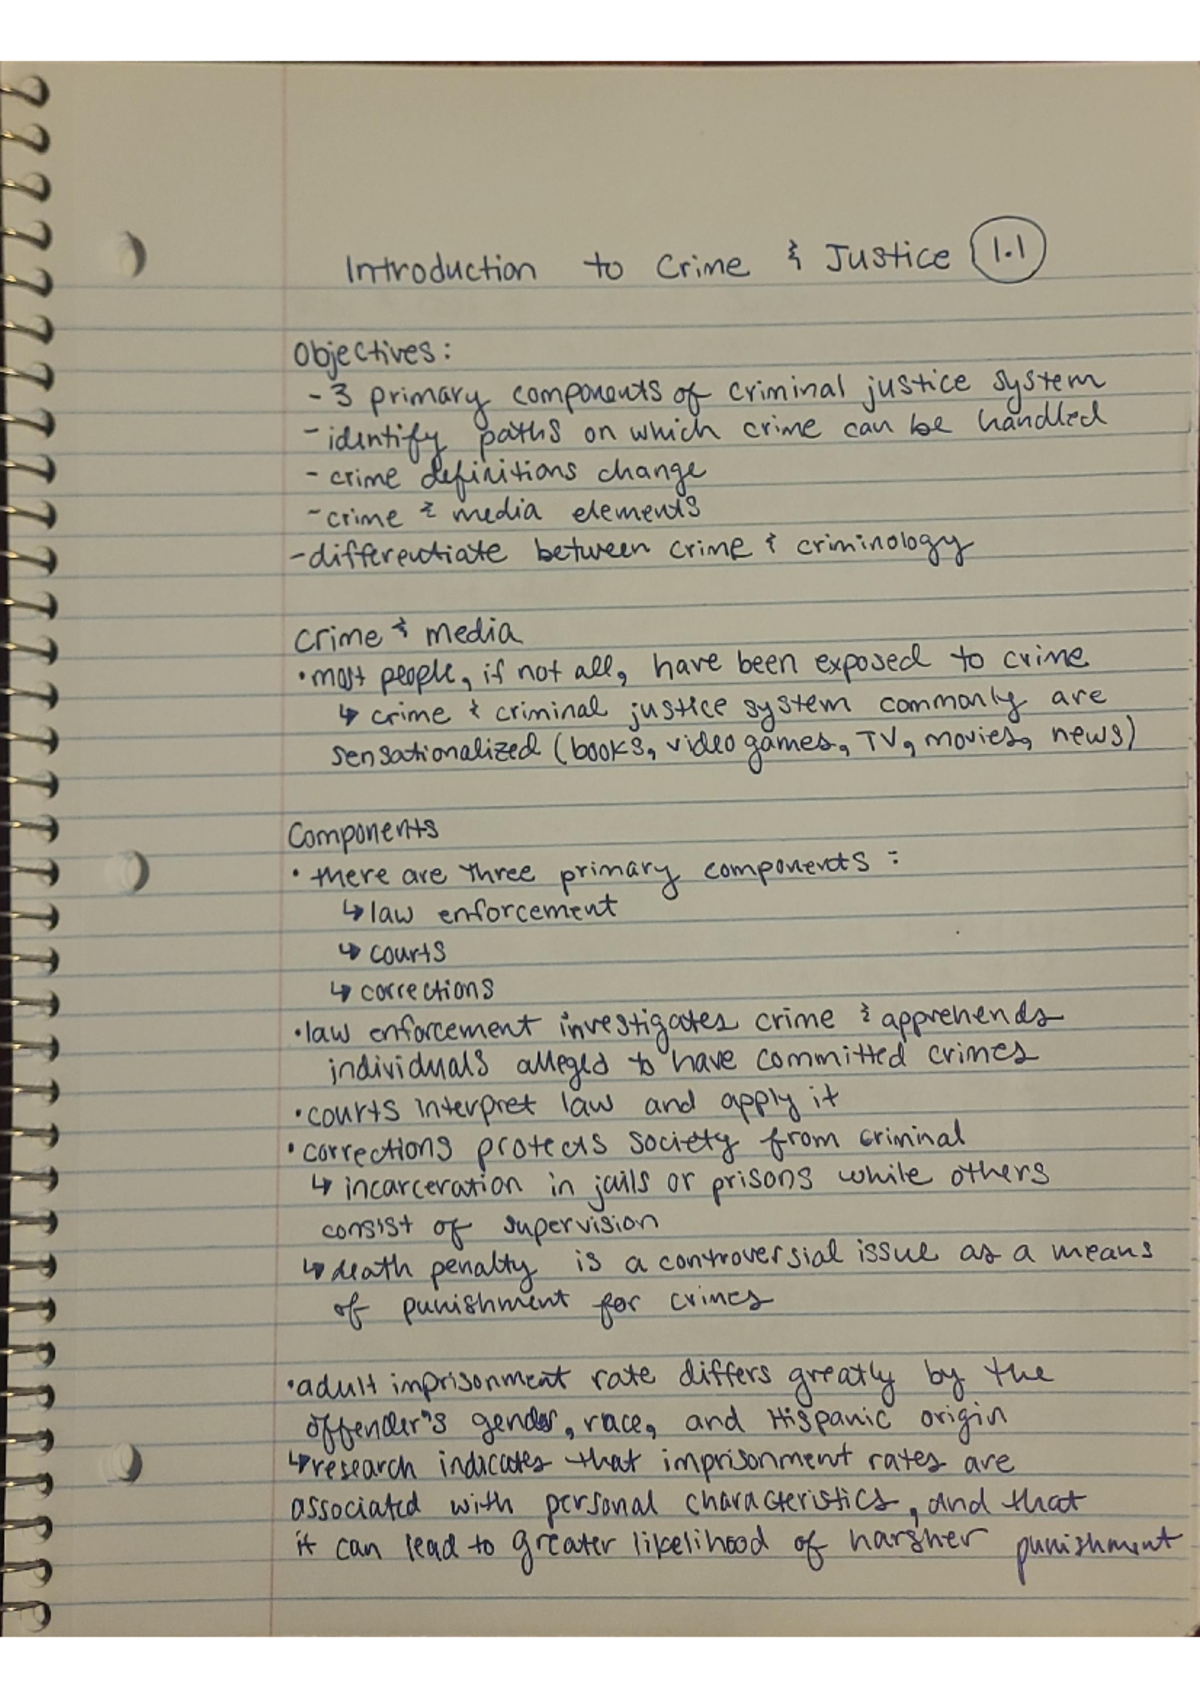 Introduction to Crime & Justice 1.1
Objectives:
- 3 primary components of criminal justice system
- identify paths on which crime can be handled
- crime definitions change
- crime & media elements
- differentiate between crime & criminology
Crime & media
• most people, if not all, have been exposed to crime
↳ crime & criminal justice system commonly are
sensationalized (books, video games, TV, movies, news)
Components
• there are three primary components:
↳ law enforcement
↳ courts
↳ corrections
• law enforcement investigates crime & apprehends
individuals alleged to have committed crimes
• courts interpret law and apply it
• corrections protects society from criminal
↳ incarceration in jails or prisons while others
consist of supervision
↳ death penalty is a controversial issue as a means
of punishment for crimes
• adult imprisonment rate differs greatly by the
offender's gender, race, and Hispanic origin
↳ research indicates that imprisonment rates are
associated with personal characteristics, and that
it can lead to greater likelihood of harsher punishment